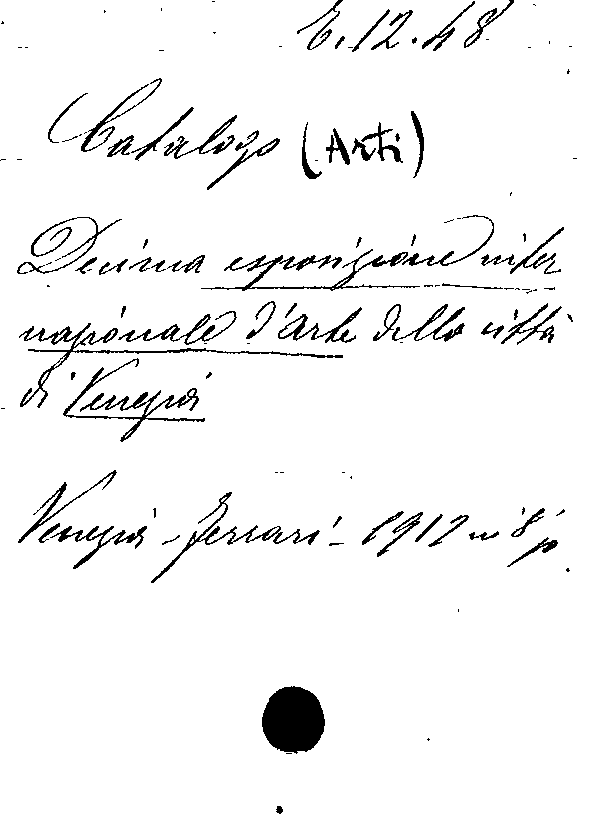 E.12.48
Catalogo (Arti)
Decima esposizione inter
nazionale d'arte della città
di Venezia
Venezia - Ferrari - 1912 in 8° p.